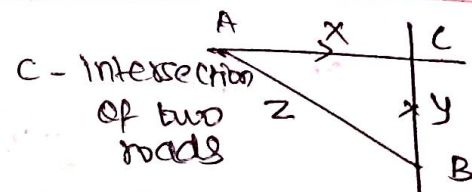 A
x
C
C - Intersection
Z
of two
y
roads
B